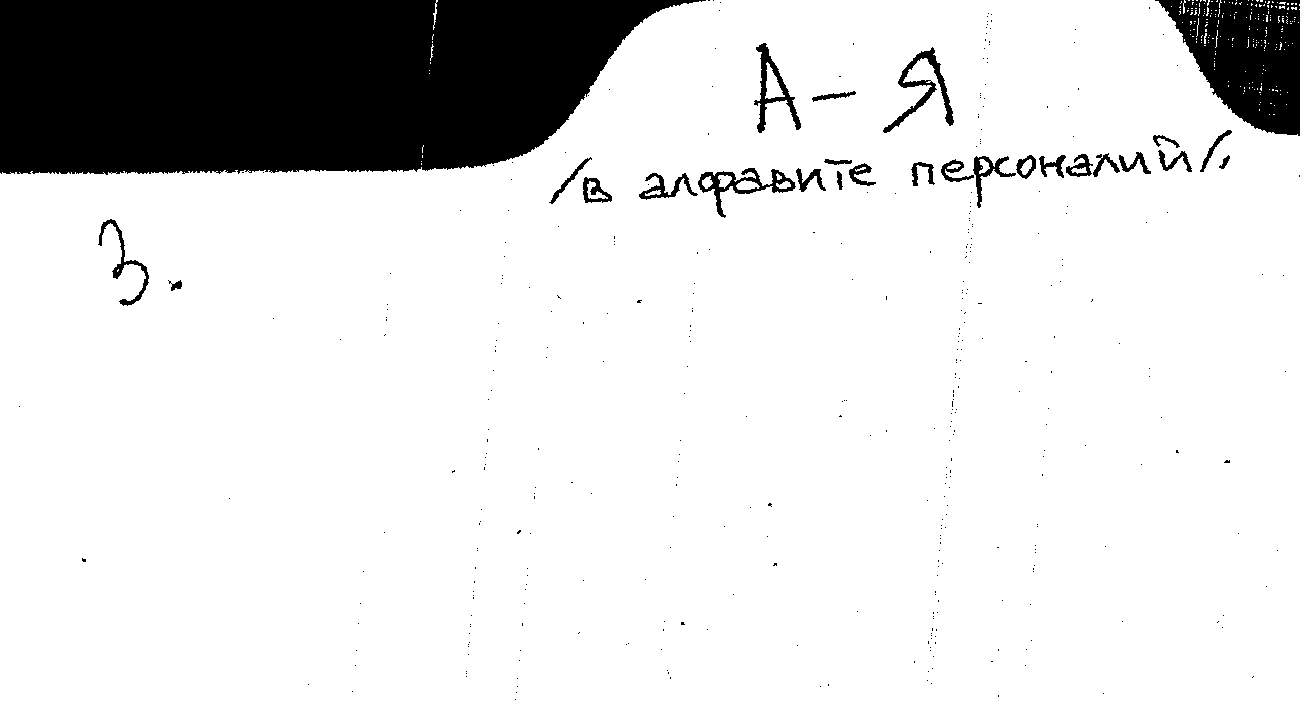 А – Я
/в алфавите персоналий/.
3.